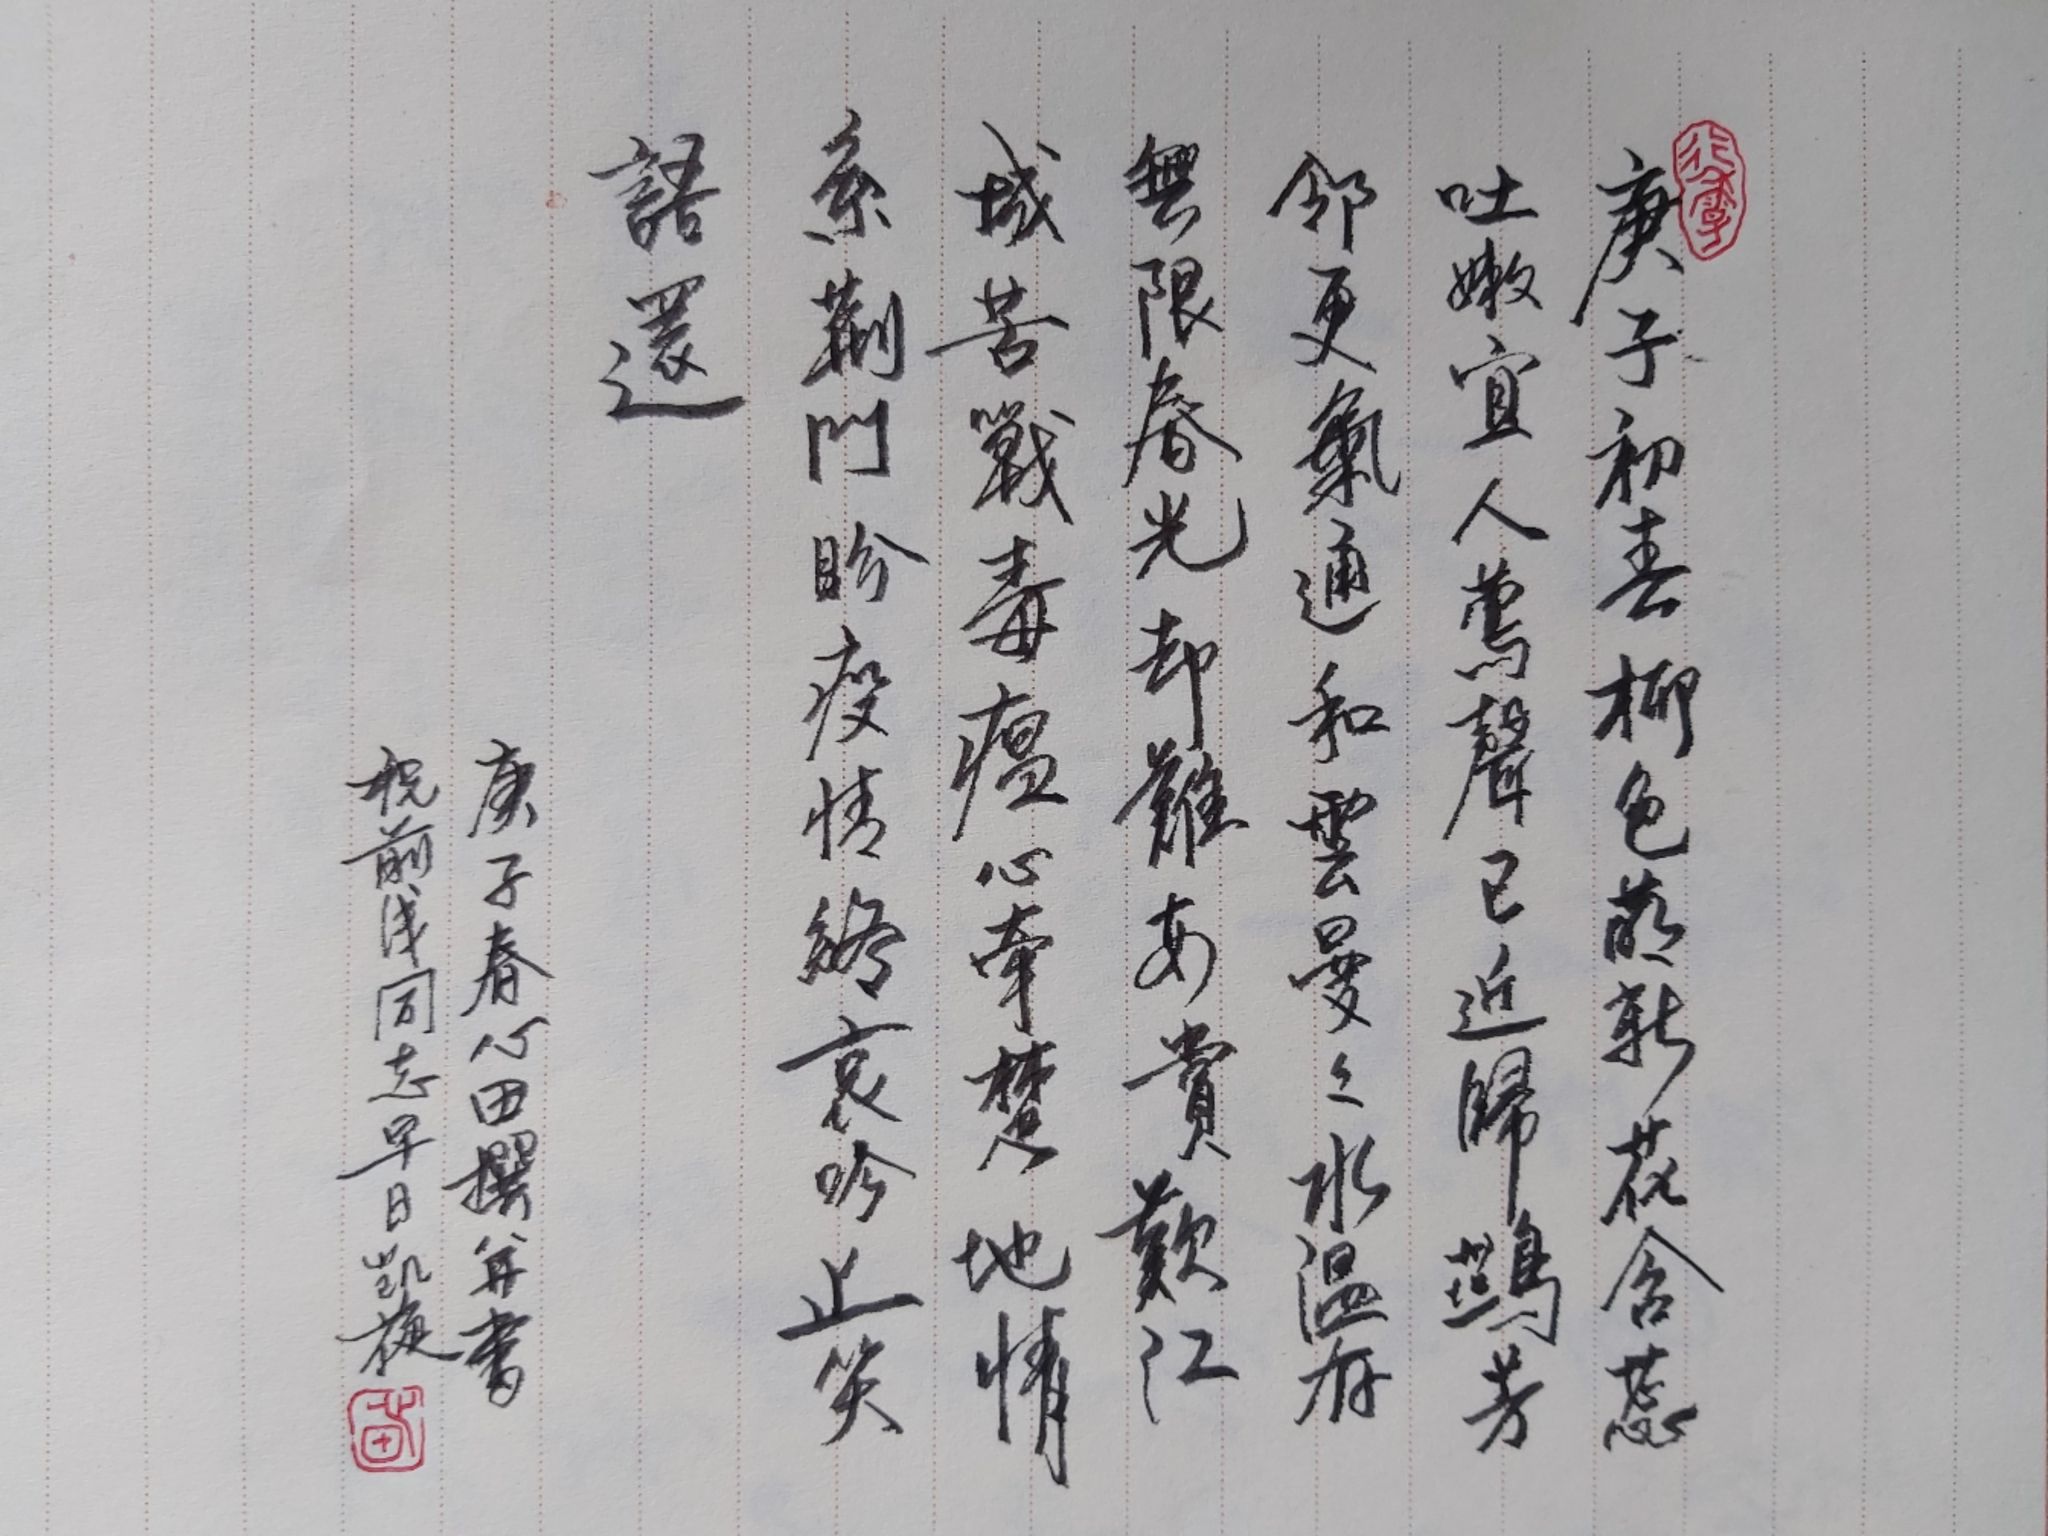 庚子初春柳色萌新花含蕊
吐嫩宜人鶯聲已近歸鷰芳
邻更氣通和雲曼々水溫存
無限春光却難安賞歎江
城苦戰毒瘟心牽楚地情
系荊門盼疫情終哀吟止笑
語還
庚子春心田撰并書
祝前线同志早日凱旋